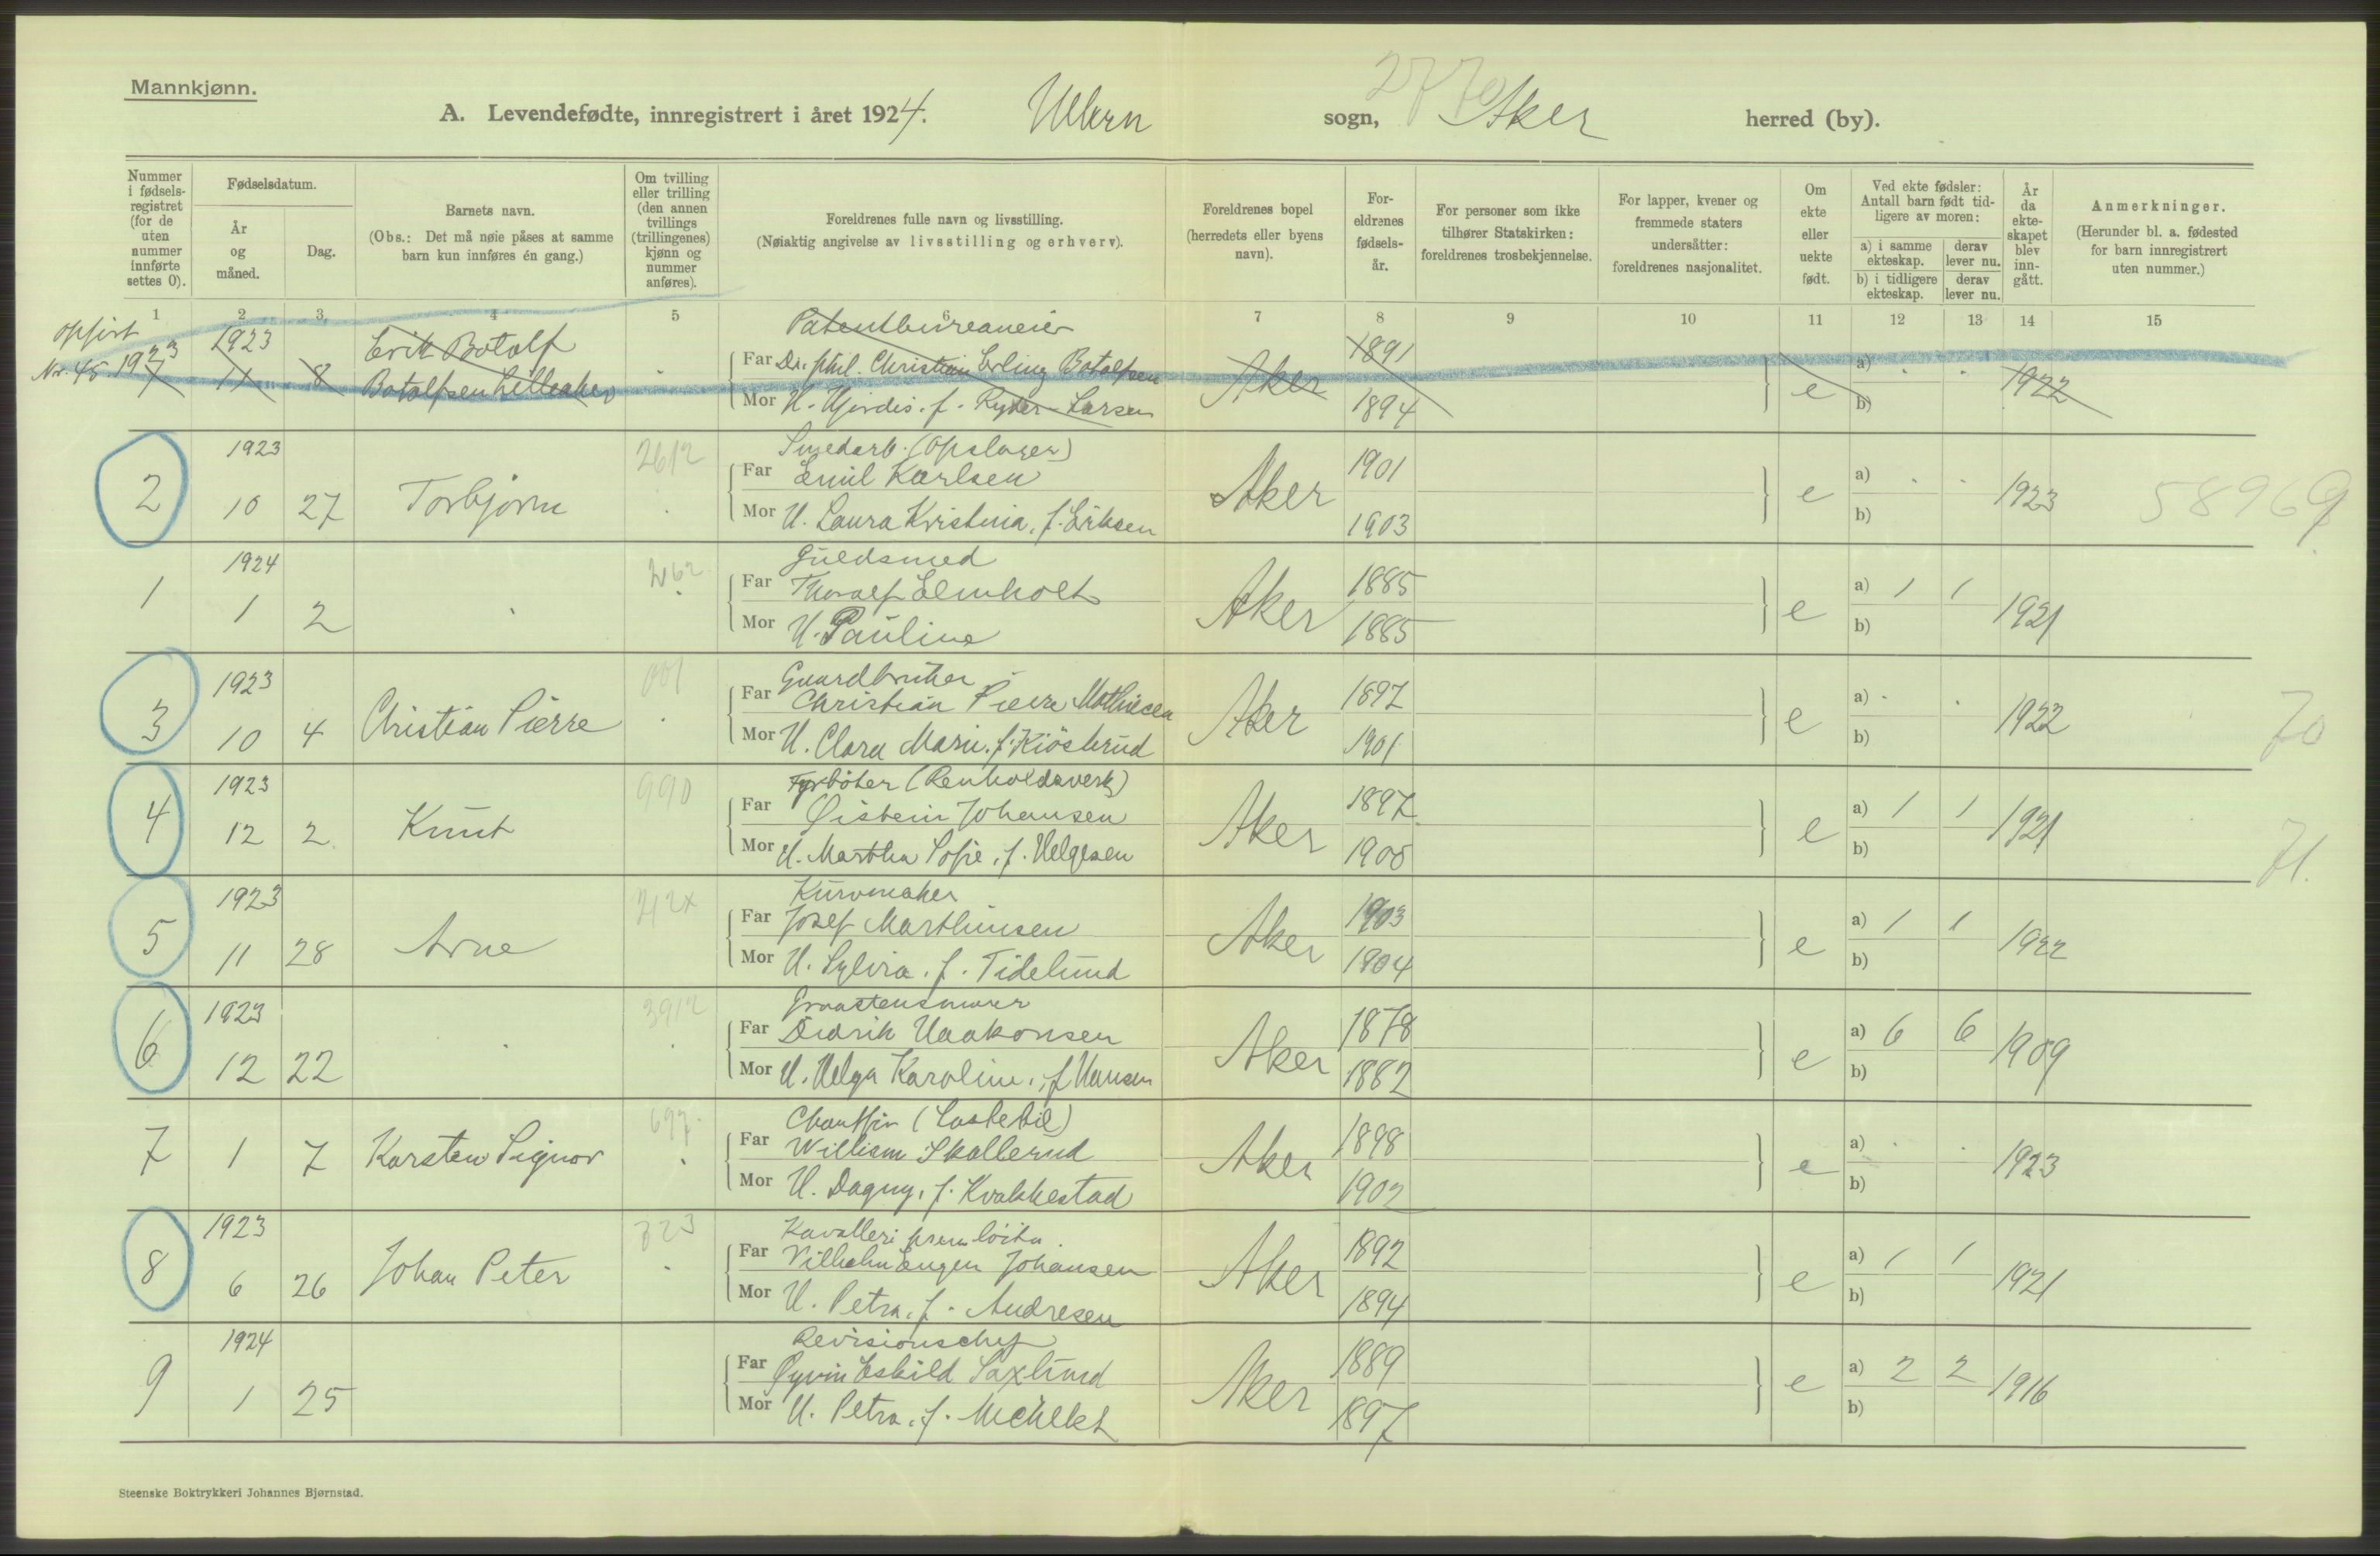 Mannkjønn.
A. Levendefødte, innregistrert i året 1924. Ullern sogn, Aker herred (by).
2770
Nummer i fødsels-registret (for de uten nummer innførte settes 0).
Fødselsdatum.
År og måned.
Dag.
Barnets navn.
(Obs.: Det må nøie påses at samme barn kun innføres én gang.)
Om tvilling eller trilling (den annen tvillings (trillingenes) kjønn og nummer anføres).
Foreldrenes fulle navn og livsstilling.
(Nøiaktig angivelse av livsstilling og erhverv).
Foreldrenes bopel (herredets eller byens navn).
For-eldrenes fødsels-år.
For personer som ikke tilhører Statskirken: foreldrenes trosbekjennelse.
For lapper, kvener og fremmede staters undersåtter: foreldrenes nasjonalitet.
Om ekte eller uekte født.
Ved ekte fødsler: Antall barn født tid-ligere av moren:
a) i samme ekteskap. derav lever nu.
b) i tidligere ekteskap. derav lever nu.
År da ekte-skapet blev inn-gått.
Anmerkninger.
(Herunder bl. a. fødested for barn innregistrert uten nummer.)
1 2 3 4 5 6 7 8 9 10 11 12 13 14 15
opført Nr. 45 1923
1923 Erik Botolf Patentbureaueier 1891
11 8 Botolfsen Lilleaker Far Dr. phil. Christian Erling Botolfsen Aker e a) 1922
Mor H. Hjørdis f. Ryder-Larsen 1894 b)
1923 2612 Smedarb. (Opslager)
2 10 27 Torbjørn Far Emil Karlsen Aker 1901 e a) 1923 58969
Mor H. Laura Kristina, f. Eriksen 1903 b)
1924 Guldsmed
1 1 2 Far Thoralf Elmholt Aker 1885 e a) 1 1 1921
Mor H. Pauline 1885 b)
1923 001 Gaardbruker
3 10 4 Christian Pierre Far Christian Pierre Mathiesen Aker 1897 e a) 1922 70
Mor H. Clara Marie f. Kiösterud 1901 b)
1923 990 Fyrböter (Renholdsverk)
4 12 2 Knut Far Øistein Johansen Aker 1897 e a) 1 1 1921 71.
Mor H. Martha Sofie, f. Helgesen 1900 b)
1923 212x Kurvmaker
5 11 28 Arne Far Josef Marthinsen Aker 1903 e a) 1 1 1922
Mor H. Sylvia. f. Tidelund 1904 b)
1923 3912 Graastensmurer
6 12 22 Far Didrik Haakonsen Aker 1878 e a) 6 6 1909
Mor H. Helga Karoline, f Hansen 1882 b)
697 Chauffør (Lastebil)
7 1 7 Karsten Signor Far William Skallerud Aker 1898 e a) 1923
Mor H. Dagny, f. Kvakkestad 1902 b)
1923 Kavalleri premlöitn.
8 6 26 Johan Peter Far Vilhelm Eugen Johansen Aker 1892 e a) 1 1 1921
Mor H. Petra. f. Andresen 1894 b)
1924 Revisionschef
9 1 25 Far Øyvin Eskild Saxlund Aker 1889 e a) 2 2 1916
Mor H. Petra. f. Michelet 1897 b)
Steenske Boktrykkeri Johannes Bjørnstad.